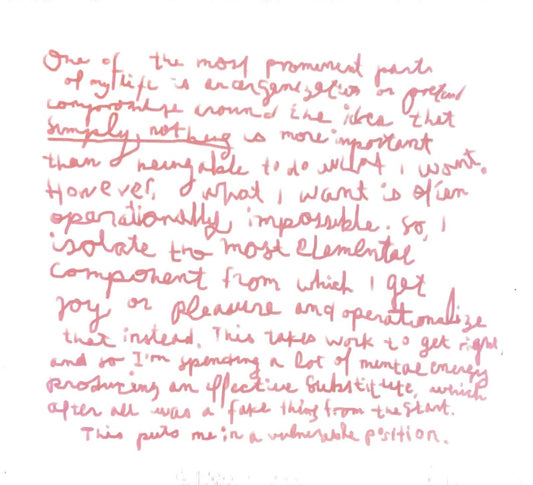 One of the most prominent parts
of my life is an organization or pretend
compromise around the idea that
simply, nothing is more important
than being able to do what I want.
However, what I want is often
operationally impossible. So, I
isolate the most elemental
component from which I get
joy or pleasure and operationalize
that instead. This takes work to get right
and so I'm spending a lot of mental energy
producing an effective substitute, which
after all was a fake thing from the start.
This puts me in a vulnerable position.